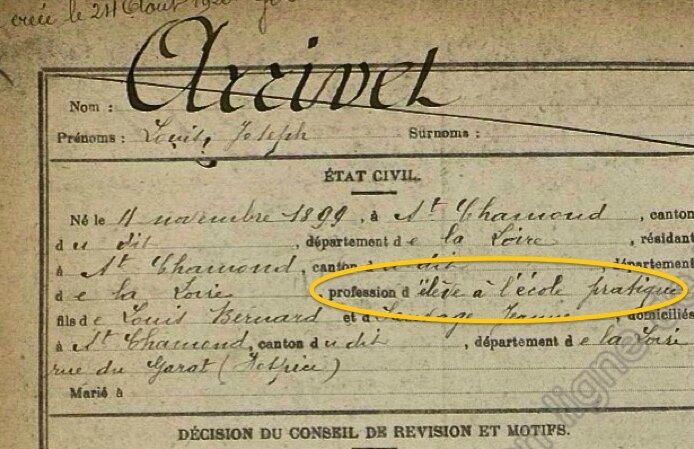 créé le 24 Août 19
Arrivet
Nom :
Prénoms : Louis Joseph Surnoms :
ÉTAT CIVIL.
Né le 11 novembre 1899, à St Chamond, canton
du dit, département de la Loire, résidant
à St Chamond, canton du dit, département
de la Loire profession d'élève à l'école pratique
fils de Louis Bernard et d Jeanne domiciliés
à St Chamond, canton du dit, département de la Loire
rue du Garat (Hospice)
Marié à
DÉCISION DU CONSEIL DE REVISION ET MOTIFS.
en ligne